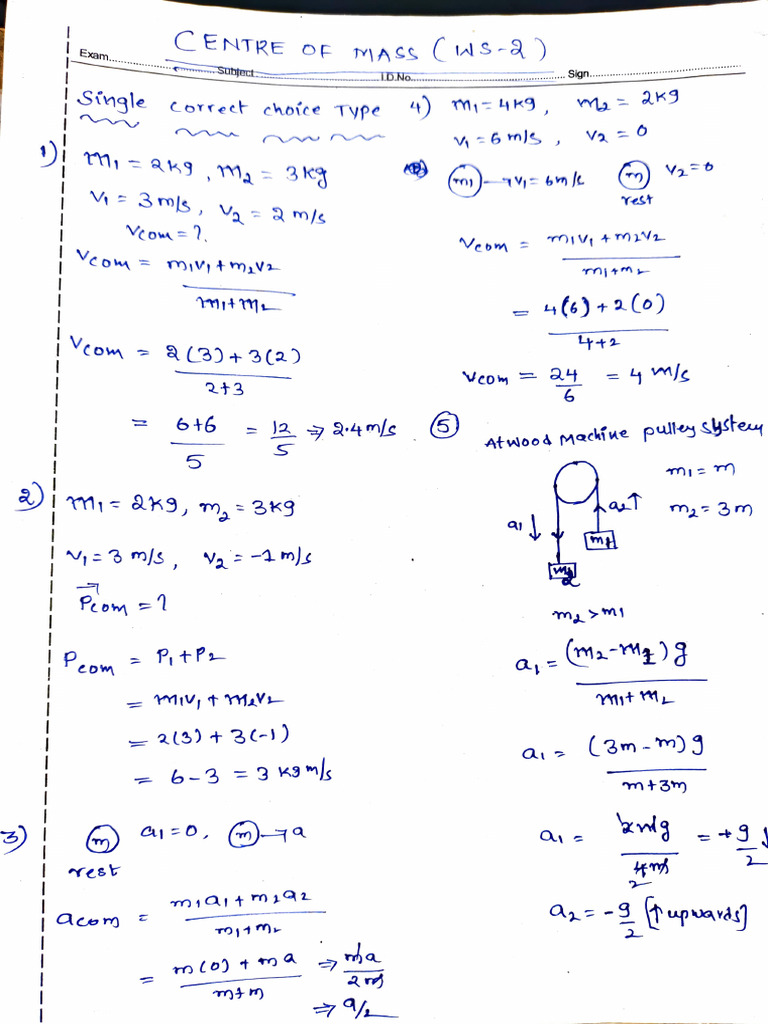 CENTRE OF MASS (WS-2)
Exam.............. Subject .............. I.D.No.............. Sign..............
Single correct choice Type
1) m1 = 2kg, m2 = 3kg
v1 = 3m/s, v2 = 2 m/s
vcom = ?.
vcom = m1v1 + m2v2
m1+m2
vcom = 2(3) + 3(2)
2+3
= 6+6 = 12 ⇒ 2.4 m/s
5 5
2) m1 = 2kg, m2 = 3kg
v1 = 3 m/s, v2 = -1 m/s
Pcom = ?
Pcom = P1 + P2
= m1v1 + m2v2
= 2(3) + 3(-1)
= 6-3 = 3 kgm/s
3) m a1 = 0, m → a
rest
acom = m1a1 + m2a2
m1+m2
= m(0) + ma ⇒ ma
m+m 2m
⇒ a/2
4) m1 = 4kg, m2 = 2kg
v1 = 6 m/s, v2 = 0
m1 → v1 = 6m/s m v2 = 0
rest
vcom = m1v1 + m2v2
m1+m2
= 4(6) + 2(0)
4+2
vcom = 24 = 4 m/s
6
5 Atwood Machine pulley system
m1 = m
a1 ↓ a2 ↑ m2 = 3m
m1
m2
m2 > m1
a1 = (m2 - m1) g
m1 + m2
a1 = (3m - m) g
m + 3m
a1 = 2mg = + g ↓
4m 2
2
a2 = - g [↑ upwards]
2